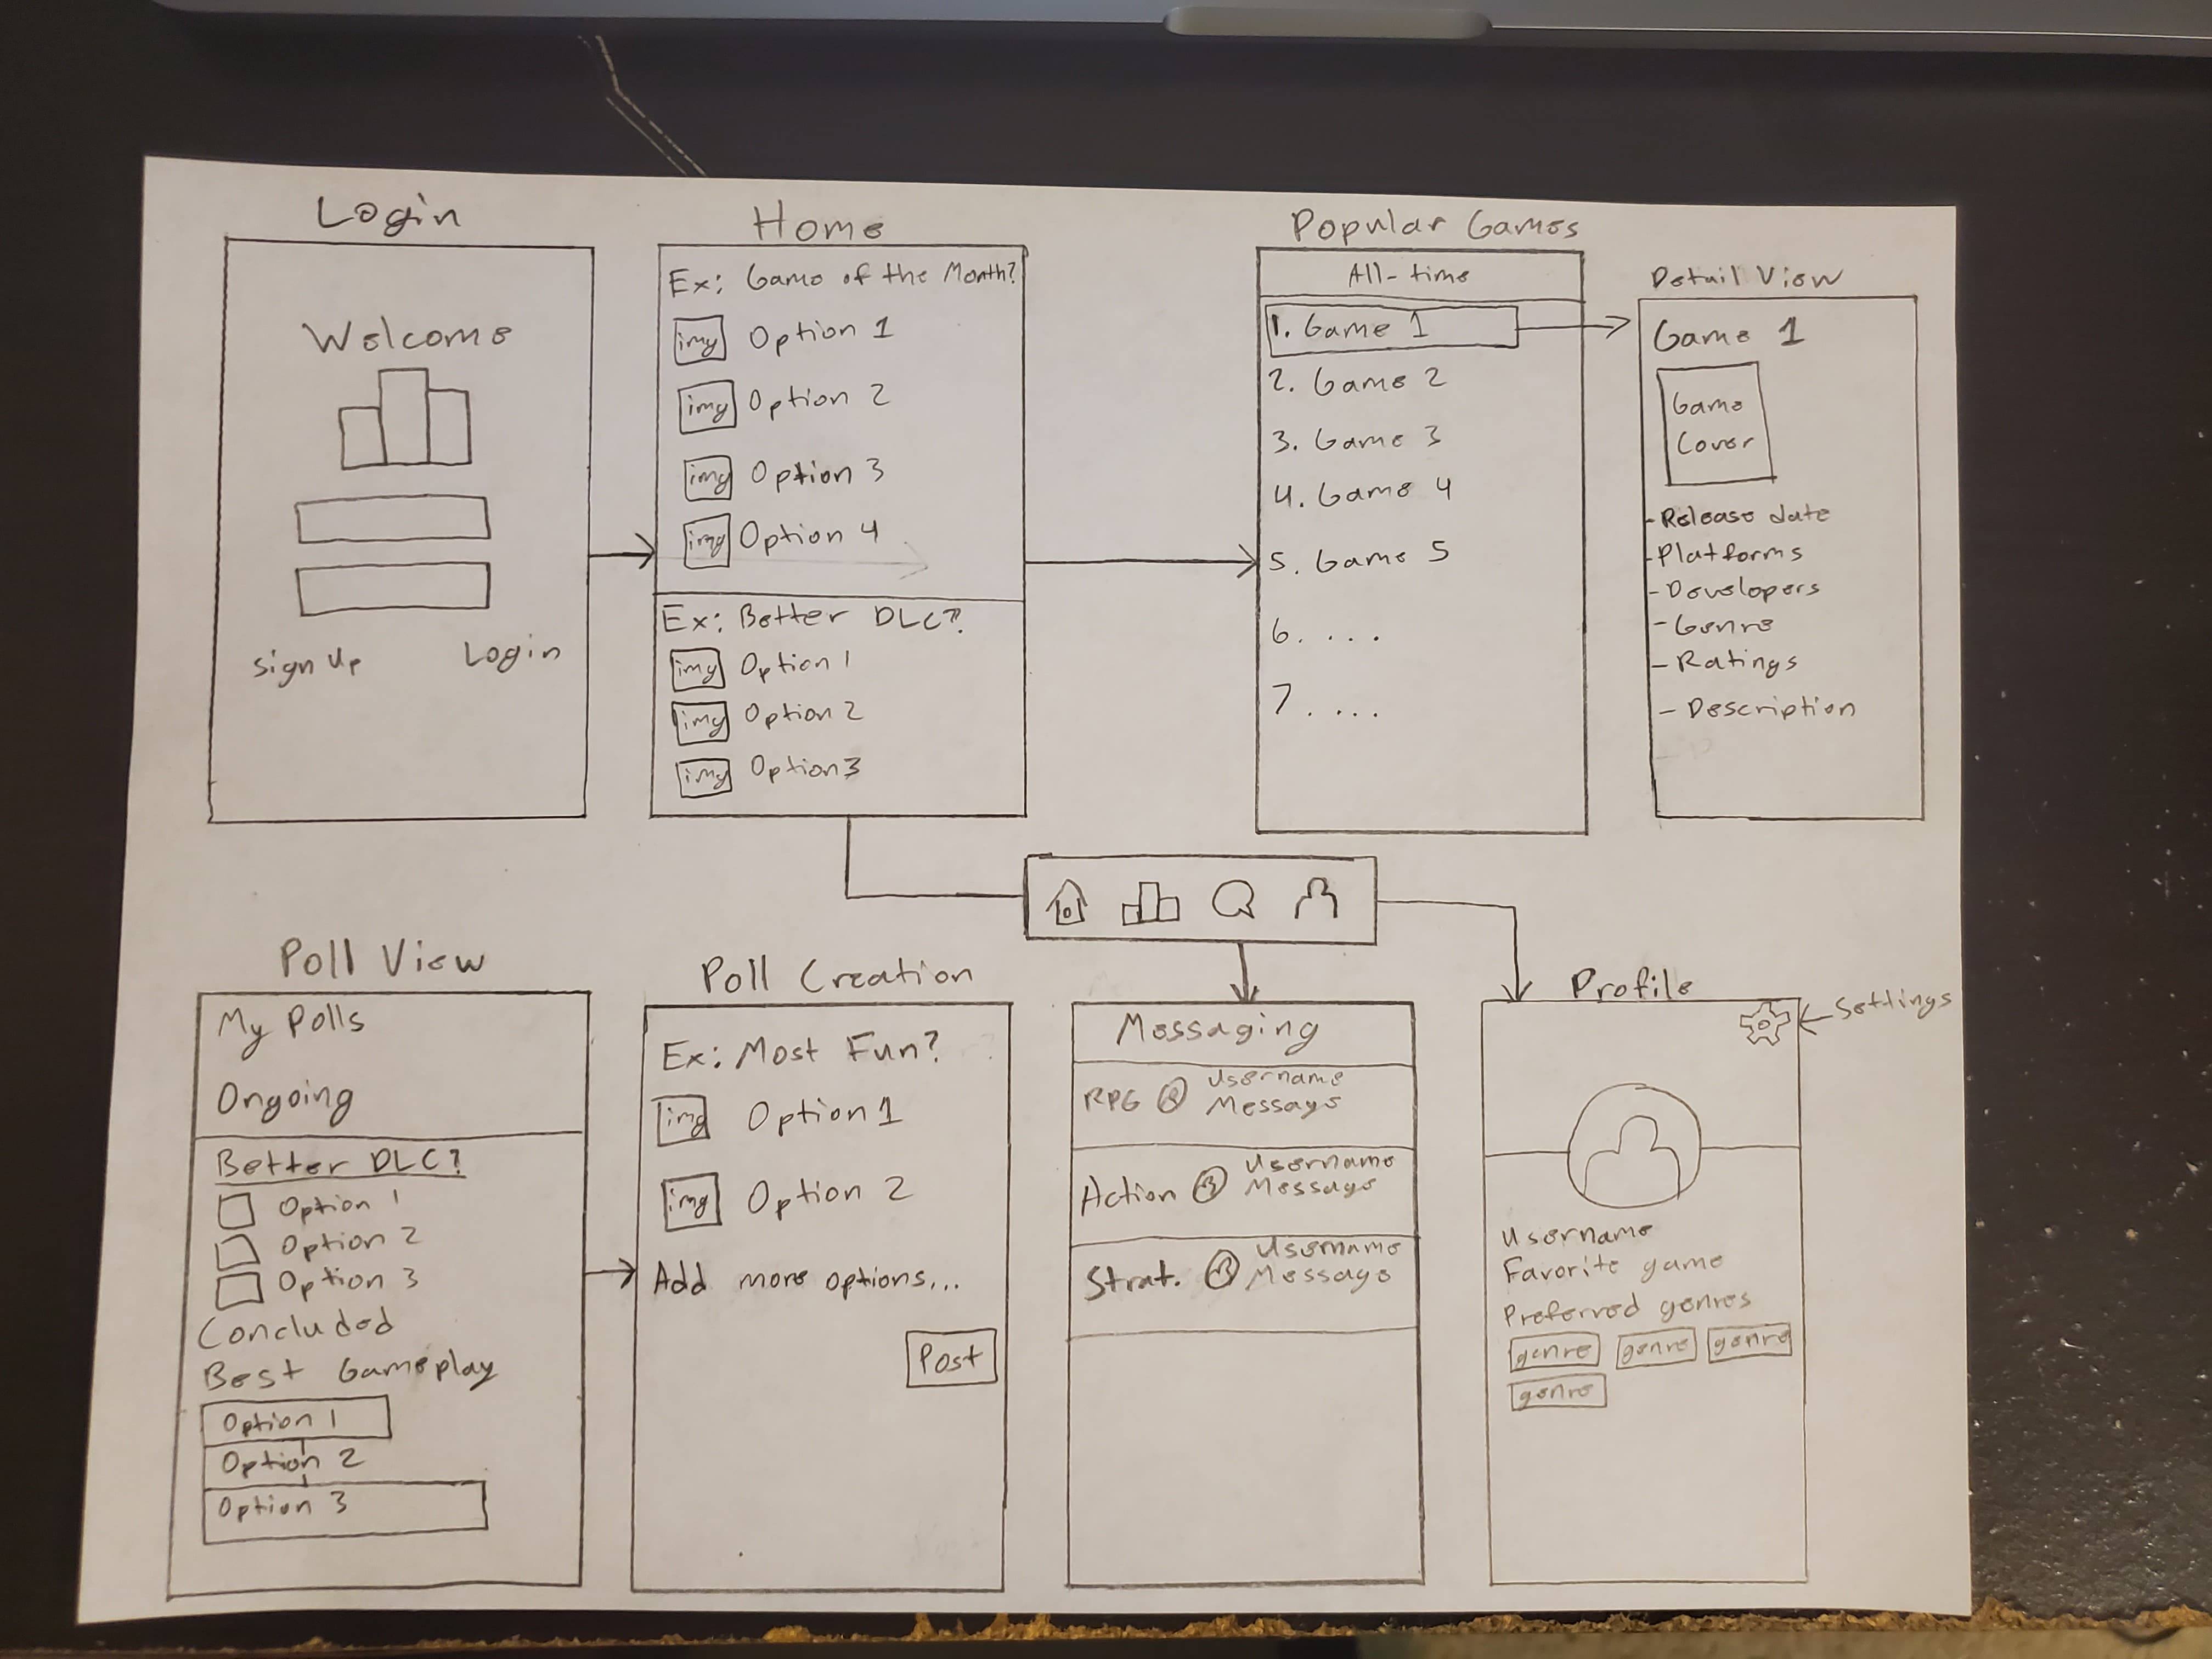 Login
Welcome
Sign Up
Login
Home
Ex: Game of the Month?
img Option 1
img Option 2
img Option 3
img Option 4
Ex: Better DLC?
img Option 1
img Option 2
img Option 3
Popular Games
All-time
1. Game 1
2. Game 2
3. Game 3
4. Game 4
5. Game 5
6. ....
7. ....
Detail View
Game 1
Game
Cover
- Release date
- Platforms
- Developers
- Genre
- Ratings
- Description
Poll View
My Polls
Ongoing
Better DLC?
Option 1
Option 2
Option 3
Concluded
Best Gameplay
Option 1
Option 2
Option 3
Poll Creation
Ex: Most Fun?
img Option 1
img Option 2
Add more options...
Post
Messaging
RPG Username
Message
Action Username
Message
Strat. Username
Message
Profile
Settings
Username
Favorite game
Preferred genres
genre genre genre
genre